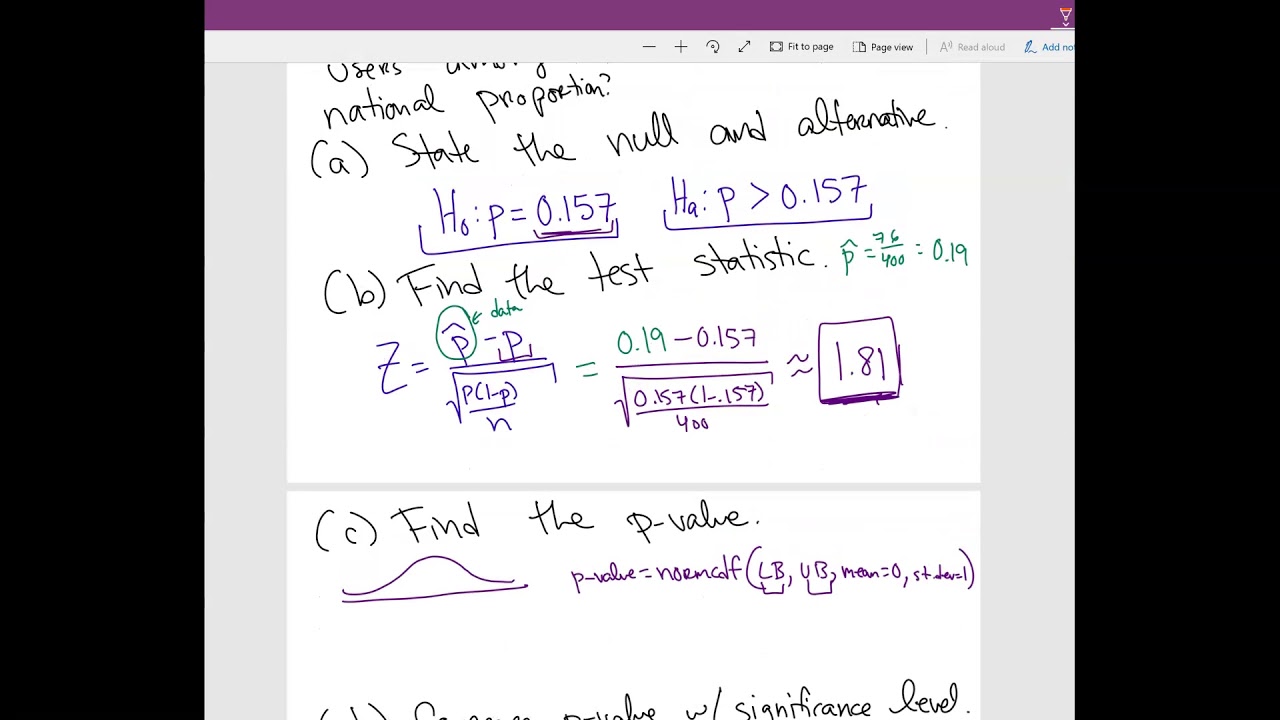 Fit to page
Page view
Read aloud
Add not
users among
national proportion?
(a) State the null and alternative.
H₀: p = 0.157 Hₐ: p > 0.157
(b) Find the test statistic. p̂ = 76/400 = 0.19
← data
Z = (p̂ - p) / √(p(1-p)/n) = (0.19 - 0.157) / √(0.157(1-.157)/400) ≈ 1.81
(c) Find the p-value.
p-value = normcdf(LB, UB, mean=0, st.dev=1)
p-value w/ significance level.